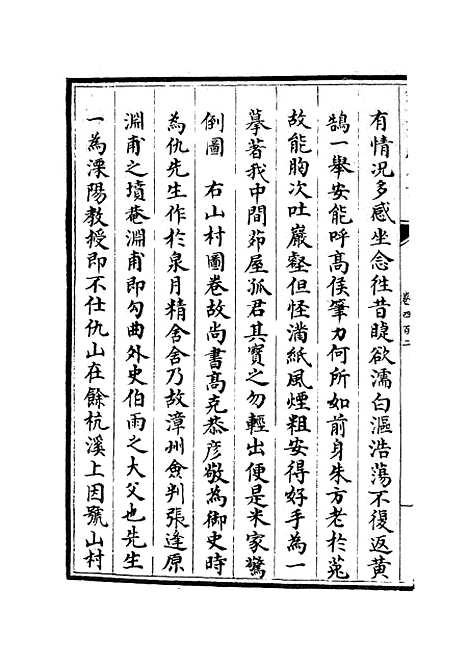 卷四百二
有情况多感坐念徃昔睫欲濡白漚浩蕩不復返黄
鵠一舉安能呼髙侯筆力何所如前身朱方老於菟
故能胸次吐巖壑但怪滿紙風煙粗安得好手為一
摹著我中間茆屋孤君其寳之勿輕出便是米家驚
倒圖　右山村圖卷故尚書髙克恭彦敬為御史時
為仇先生作於泉月精舍舍乃故漳州僉判張逢原
淵甫之墳菴淵甫即勾曲外史伯雨之大父也先生
一為溧陽教授即不仕仇山在餘杭溪上因號山村